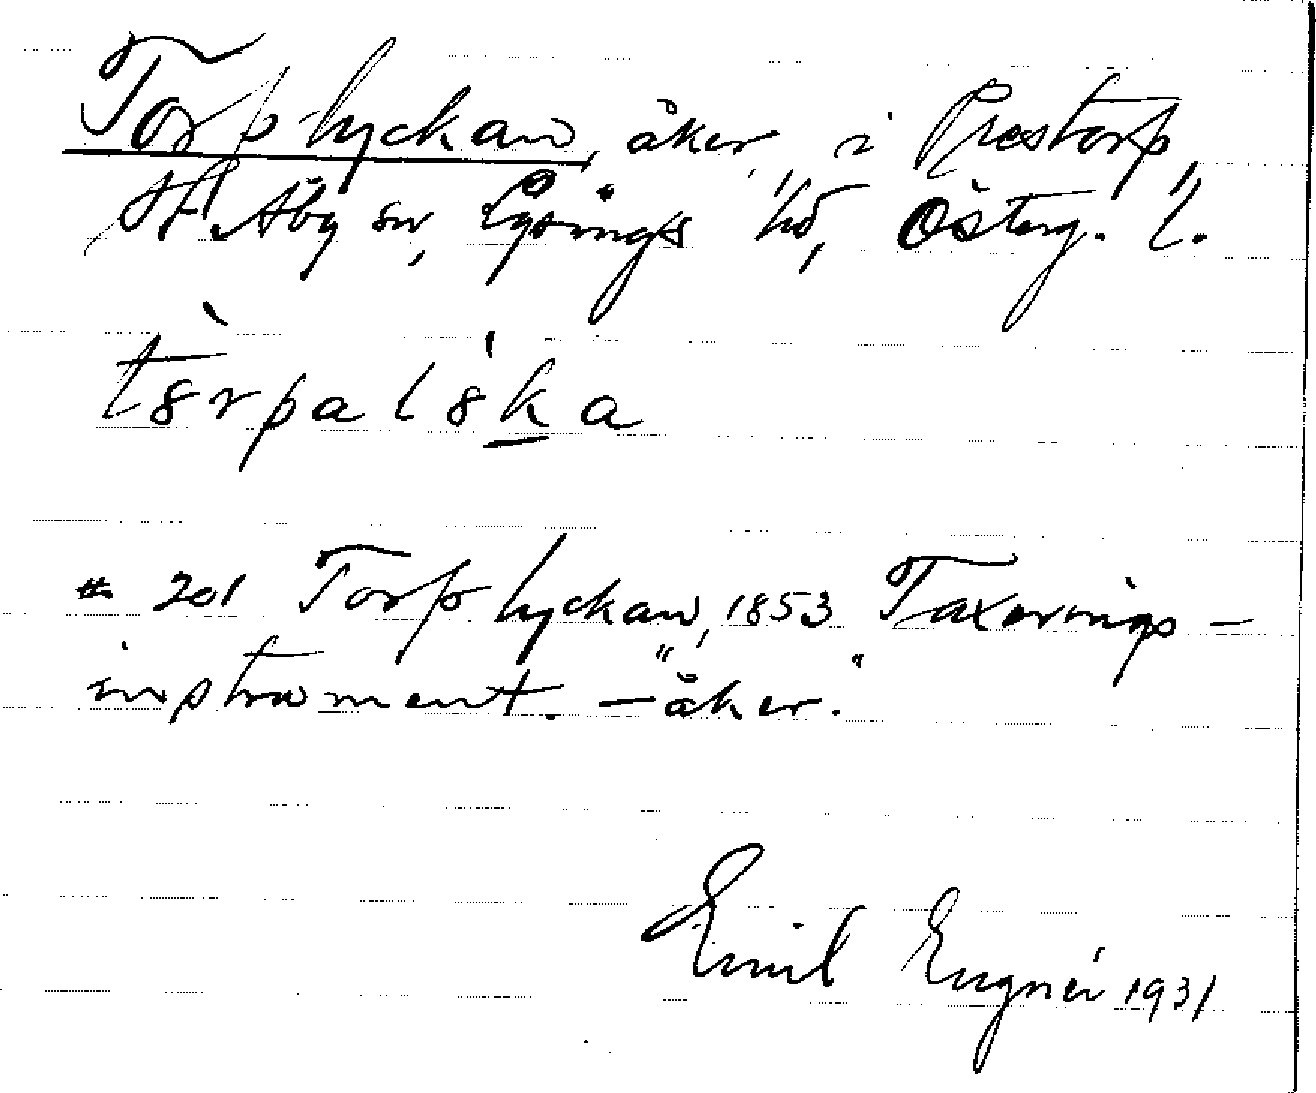 Torplyckan, åker, i Prestorp,
St. Åby sn, Lysings hd, Österg. l.
tòrpalı́ka
# 201 Torplyckan, 1853 Taxerings-
instrument. - "åker."
Emil Engnér 1931